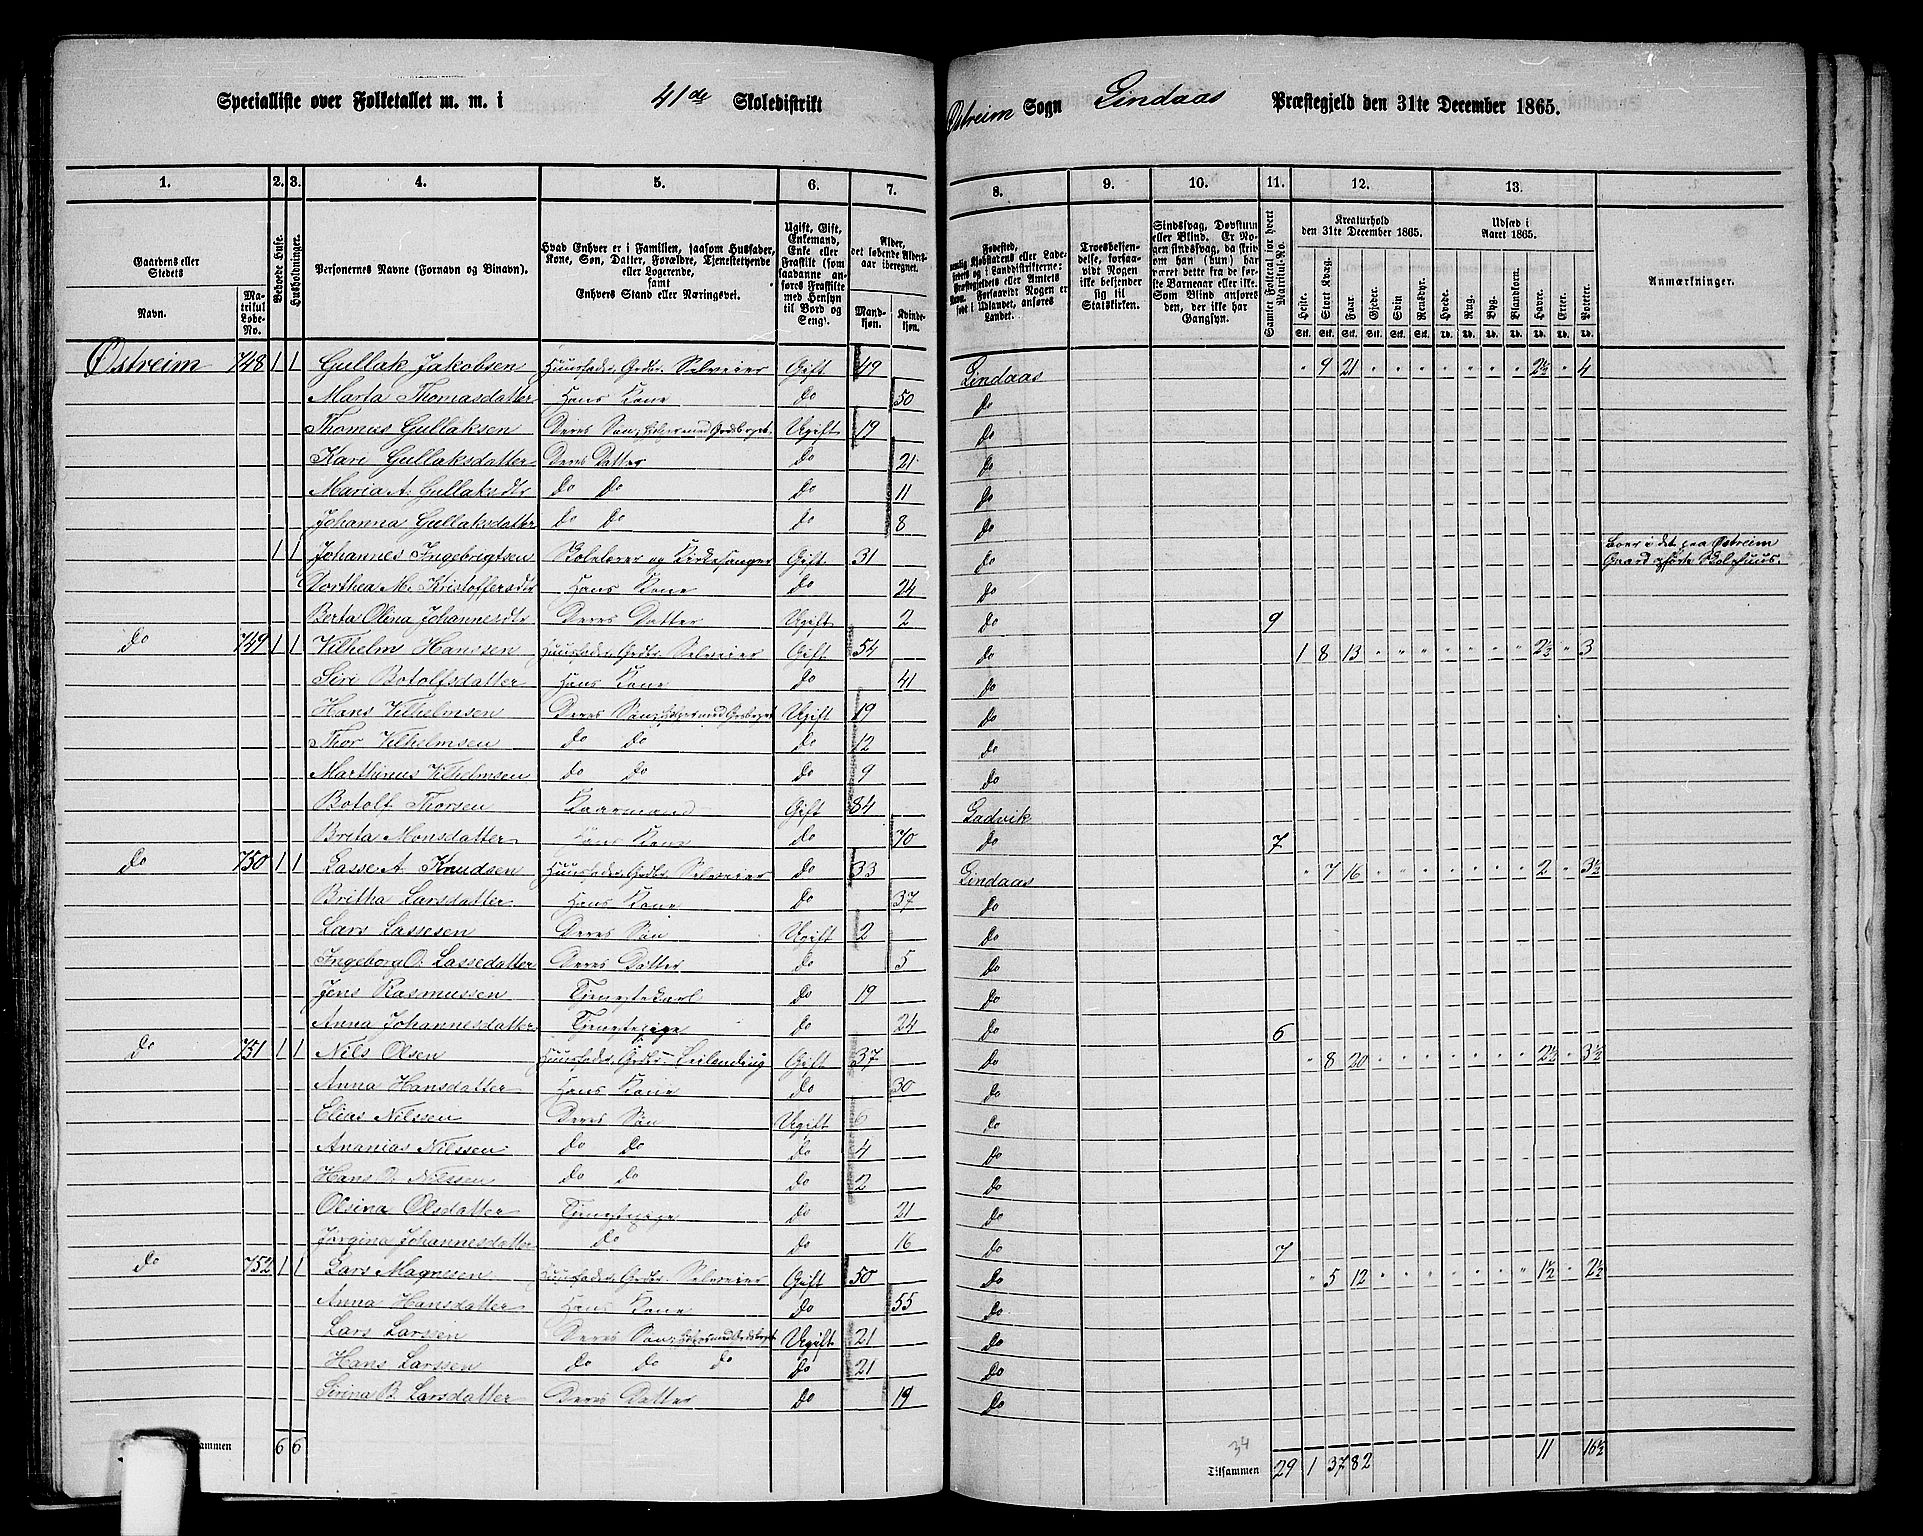 Specialliste over Folketallet m. m. i 41de Skoledistrikt Østreim Sogn Lindaas Præstegjeld den 31te December 1865.
1. 2. 3. 4. 5. 6. 7. 8. 9. 10. 11. 12. 13.
Gaardens eller Stedets
Navn. Matrikul Løbe-No.
Beboede Huse.
Husholdninger.
Personernes Navne (Fornavn og Binavn).
Hvad Enhver er i Familien, saasom Husfader, Kone, Søn, Datter, Forældre, Tjenestetyende eller Logerende, samt Enhvers Stand eller Næringsvei.
Ugift, Gift, Enkemand, Enke eller Fraskilt (som saadanne anføres Fraskilte med Hensyn til Bord og Seng).
Alder, det løbende Aldersaar iberegnet.
Mandkjøn. Kvindekjøn.
Fødested,
Troesbekjendelse, forsaavidt Nogen ikke bekjender sig til Statskirken.
Sindssvag, Døvstum eller Blind. Er Nogen sindssvag, da skrives om han (hun) har været dette fra de første Barneaar eller ikke. Som Blind anføres den, der ikke har Gangsyn.
Samlet Folketal for hvert Matrikul-No.
Kreaturhold den 31te December 1865.
Heste. Stort Kvæg. Faar. Gjeder. Svin. Rensdyr.
Udsæd i Aaret 1865.
Hvede. Rug. Byg. Blandkorn. Havre. Erter. Poteter.
Anmærkninger.
Østreim 748 1 1 Gullak Jakobsen Huusfader, Grdbr. Selveier Gift 49 Lindaas " 9 21 " " " " " " " 2½ " 4
Marta Thomasdatter Hans Kone do 50 do
Thomas Gullaksen Deres Søn, hjelper med Grdsbrget. Ugift 19 do
Kari Gullaksdatter Deres Datter do 21 do
Maria A. Gullaksdtr do do do 11 do
Johanna Gullaksdatter do do do 8 do
1 1 Johannes Ingebrigtsen Skolelærer og Kirkesanger Gift 31 do Boer i det paa Østreim
Gaard opførte Skolehuus.
Dorthea M. Kristoffersdtr Hans Kone do 24 do
Berta Olina Johannesdtr Deres Datter Ugift 2 do 9
do 749 1 1 Vilhelm Hanssen Huusfader, Grdbr. Selveier Gift 54 do 1 8 13 " " " " " " " 2½ " 3
Siri Botolfsdatter Hans Kone do 41 do
Hans Vilhelmsen Deres Søn, hjelper med Grdsbrget Ugift 19 do
Thor Vilhelmsen do do do 12 do
Marthinus Vilhelmsen do do do 9 do
Botolf Thorsen Kaarmand Gift 84 Ladvik
Brita Monsdatter Hans Kone do 70 do 7
do 750 1 1 Lasse A. Knudsen Huusfader, Grdbr. Selveier do 33 Lindaas " 7 16 " " " " " " " 2 " 3½
Britha Larsdatter Hans Kone do 37 do
Lars Lassesen Deres Søn Ugift 2 do
Ingeborg O. Lassedatter Deres Datter do 5 do
Jens Rasmussen Tjenestekarl do 19 do
Anna Johannesdatter Tjenestepige do 24 do 6
do 751 1 1 Nils Olsen Huusfader, Grdbr. Leilending Gift 37 do " 8 20 " " " " " " " 2½ " 3½
Anna Hansdatter Hans Kone do 30 do
Elias Nilssen Deres Søn Ugift 6 do
Ananias Nilssen do do do 4 do
Hans O. Nilssen do do do 2 do
Olsina Olsdatter Tjenestepige do 21 do
Jørgina Johannesdatter do do 16 do 7
do 752 1 1 Lars Magnesen Huusfader, Grdbr. Selveier Gift 50 do " 5 12 " " " " " " " 1½ " 2½
Anna Hansdatter Hans Kone do 55 do
Lars Larssen Deres Søn, hjelper med Grdsbrget Ugift 21 do
Hans Larssen do do do do 21 do
Sirina B. Larsdatter Deres Datter do 19 do
6 6 34
Tilsammen 29 1 37 82 11 16½